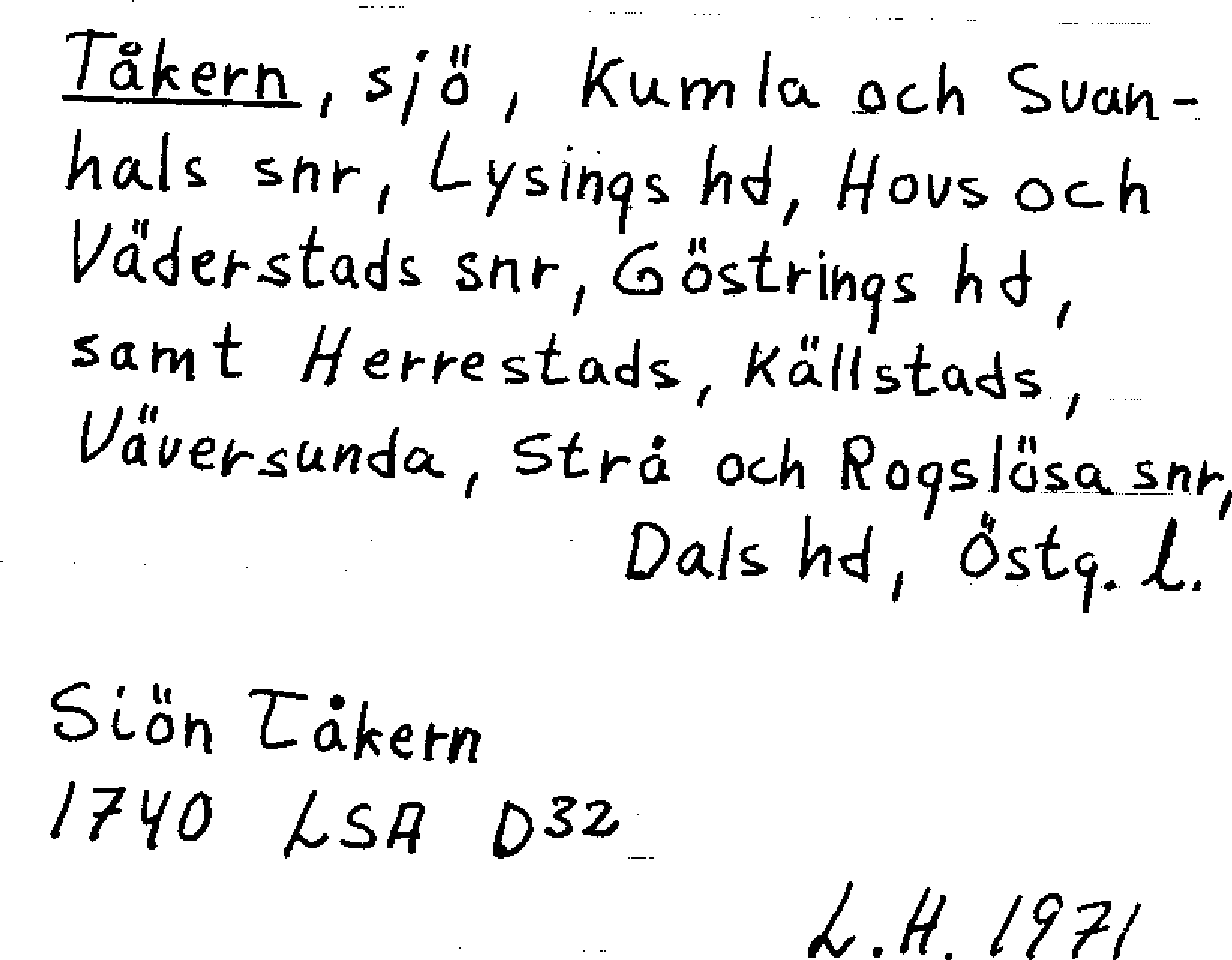 Tåkern, sjö, Kumla och Svan-
hals snr, Lysings hd, Hovs och
Väderstads snr, Göstrings hd,
samt Herrestads, Källstads,
Väversunda, Strå och Rogslösa snr,
Dals hd, Östg. l.
Siön Tåkern
1740 LSA D32
L.H. 1971